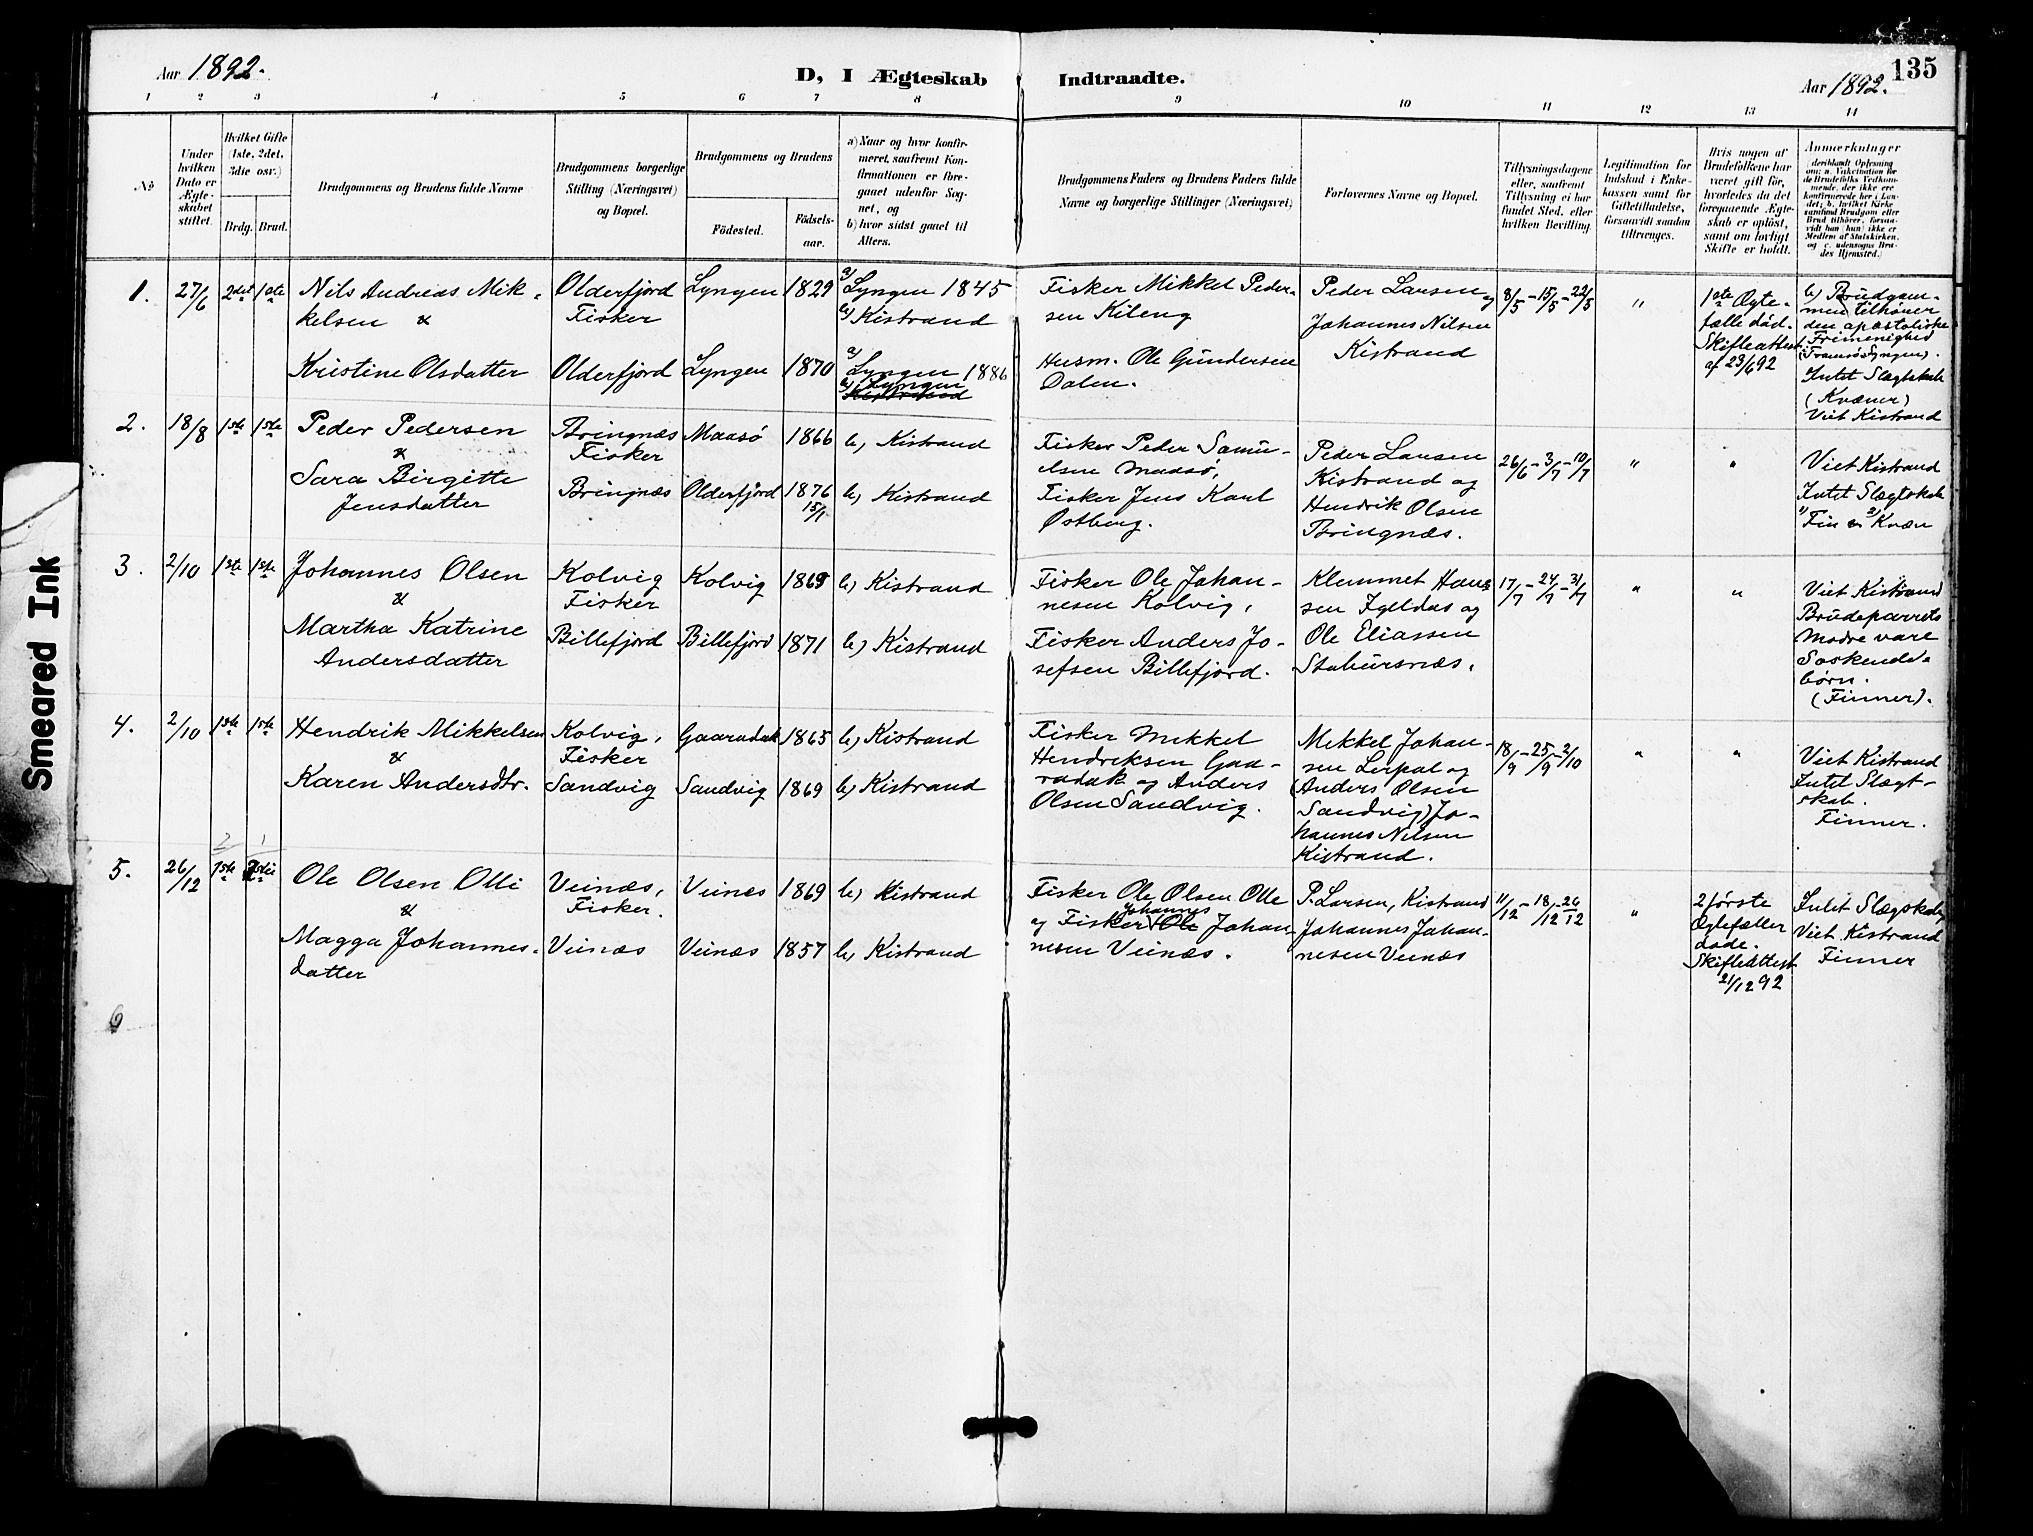 Aar 1892.
D, I Ægteskab Indtraadte.
Aar 1892.
135
1 2 3 4 5 6 7 8 9 10 11 12 13 14
No
Under hvilken Dato er Ægteskabet stiftet.
Hvilket Gifte (1ste, 2det, 3die osv.)
Brdg. Brud.
Brudgommens og Brudens fulde Navne
Brudgommens borgerlige Stilling (Næringsvei) og Bopæl.
Brudgommens og Brudens
Födested.
Födsels-aar.
a) Naar og hvor konfirmeret, saafremt Konfirmationen er foregaaet udenför Sognet, og
b) hvor sidst gaaet til Alters.
Brudgommens Faders og Brudens Faders fulde Navne og borgerlige Stillinger (Næringsvei)
Forlovernes Navne og Bopæl.
Tillysningsdagene eller, saafremt Tillysning ei har fundet Sted, efter hvilken Bevilling.
Legitimation for Indskud i Enkekassen samt for Giftetilladelse, forsaavidt saadan tiltrænges.
Hvis nogen af Brudefolkene har været gift för, hvorledes da det foregaaende Ægteskab er oplöst, samt om lovligt Skifte er holdt.
Anmærkninger
(deriblandt Oplysning om: a. Vakcination for de Brudefolks Vedkommende, der ikke ere konfirmerede her i Landet; b. hvilket Kirkesamfund Brudgom eller Brud tilhörer, forsaavidt han (hun) ikke er Medlem af Statskirken, og c. udensogns Brudes Hjemsted.)
1.
27/6
2det
1ste
Nils Andreas Mik-
kelsen &
Kristine Olsdatter
Olderfjord
Fisker
Olderfjord
Lyngen
Lyngen
1829
1870
a) Lyngen 1845
b) Kistrand
a) Lyngen 1886
b) Lyngen
Kistrand
Fisker Mikkel Peder-
sen Kileng
Husm. Ole Gundersen
Dalen.
Peder Larsen og
Johannes Nilsen
Kistrand
8/5 - 15/5 - 22/5
"
1ste Ægte-
fælle död.
Skifteattest
af 23/6 92
b) Brudgom-
men tilhører
den apostoliske
Frimenighed
(Tromsö Lyngen).
Intet Slægtskab
(Kvæner)
Viet Kistrand
2.
18/8
1ste
1ste
Peder Pedersen
&
Sara Birgitte
Jensdatter
Bringnæs
Fisker
Bringnæs
Maasö
Olderfjord
1866
1876
15/1
b) Kistrand
b) Kistrand
Fisker Peder Samu-
elsen Maasö,
Fisker Jens Karl
Ostberg.
Peder Larsen
Kistrand og
Hendrik Olsen
Bringnæs.
26/6 - 3/7 - 10/7
"
"
Viet Kistrand
Intet Slægtskab
1) Fin 2) Kvæn
3.
2/10
1ste
1ste
Johannes Olsen
&
Martha Katrine
Andersdatter
Kolvig
Fisker
Billefjord
Kolvig
Billefjord
1869
1871
b) Kistrand
b) Kistrand
Fisker Ole Johan-
nesen Kolvig,
Fisker Anders Jo-
sefsen Billefjord.
Klemmet Han-
sen Igeldas og
Ole Eliassen
Stabursnæs.
17/7 - 24/7 - 31/7
"
"
Viet Kistrand
Brudeparrets
Mødre vare
Søskende-
børn.
(Finner).
4.
2/10
1ste
1ste
Hendrik Mikkelsen
&
Karen Andersdtr.
Kolvig,
Fisker
Sandvig
Gaaradak
Sandvig
1865
1869
b) Kistrand
b) Kistrand
Fisker Mikkel
Hendriksen Gaa-
radak og Anders
Olsen Sandvig.
Mikkel Johan-
sen Lerpol og
(Anders Olsen
Sandvig) Jo-
hannes Nilsen
Kistrand.
18/9 - 25/9 - 2/10
"
"
Viet Kistrand
Intet Slægt-
skab.
Finner.
2 1
5.
26/12
1ste
Ole Olsen Olli
&
Magga Johannes-
datter
Veinæs,
Fisker.
Veinæs
Veinæs
Veinæs
1869
1857
b) Kistrand
b) Kistrand
Fisker Ole Olsen Olle
Johannes
og Fisker Ole Johan-
nesen Veinæs.
P. Larsen, Kistrand
Johannes Johan-
nesen Veinæs
11/12 - 18/12 - 26/12
"
2 første
Ægtefæller
døde.
Skifteattest
21/12 92
Intet Slægtskab
Viet Kistrand
Finner
6
Smeared Ink